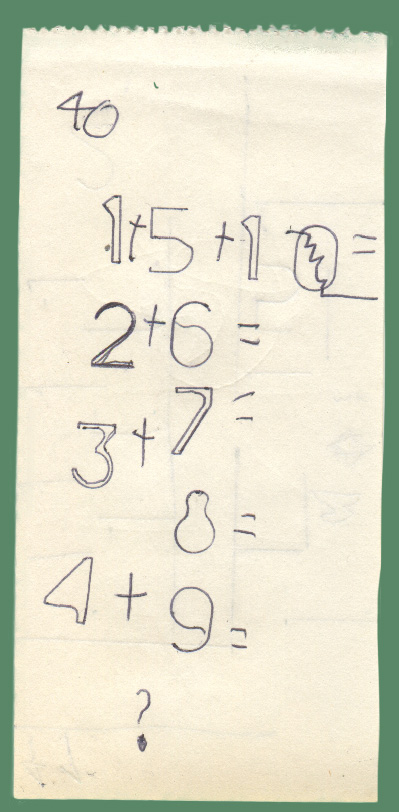 40
1+5+1 =
2+6=
3+7=
8=
4+9=
?